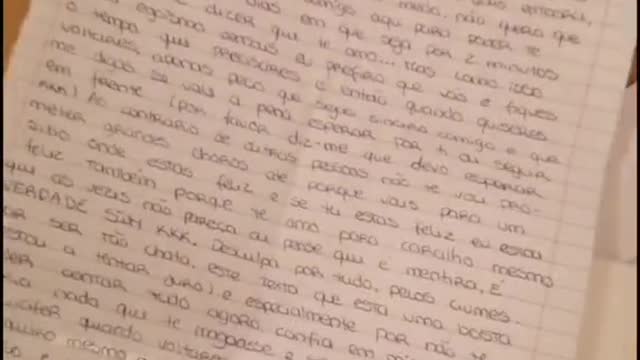 medo, não quero que
comigo aqui para poder te
dias em que seja por 2 minutos
dizer que te amo... mas como isso
egoismo eu prefiro que vás e fiques
o tempo que precisares e então quando quiseres
voltares apenas peço que sejas sincero comigo e que
me digas se vale a pena esperar por ti ou seguir
em frente (por favor diz-me que devo esperar
Ao contrario de outras pessoas não te vou pro-
meter grandes choros até porque vais para um
sitio onde estas feliz e se tu estas feliz eu estou
feliz também porque te amo para caralho mesmo
que as vezes não pareça ou pense que é mentira, é
VERDADE SIM KKK. Desculpa por tudo, pelos ciumes.
por ser tão chata, este texto que esta uma bosta
estou a tentar juro), e especialmente por não te
contar tudo agora, confia em mim
nada que te magoasse e
quando voltares
mesmo